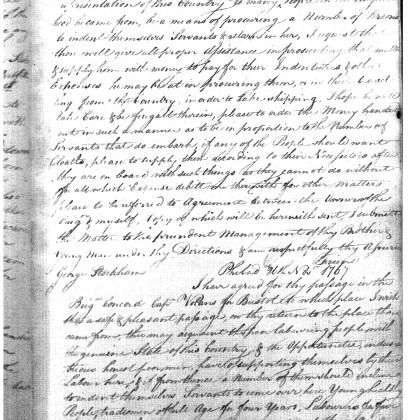 of this Country to many People in the
hood he came from, be a means of procuring a Number of Persons
to indent themselves Servants & return in her, I request
thou will give all proper Assistance in procuring that matter
& supply him with money to pay for their Indentures & other
Expences he may be at in procuring them, or in their travel
ling from the Country, in order to take shipping, I hope he will
take Care & be frugal therein, please to order the Money handed
out in such a manner as to be in proportion to the Number of
Servants that do embark, if any of the People should want
Cloaths, please to supply them according to their Necessities after
they are on board with such things as they cannot do without
for all which Expence debit the for other Matters
please to be referred to Agreement between the Owners of the
Brig & myself, Copy of which will be herewith sent, I submit
the Matter to the prudent Management of thy Brother &
young man under thy Directions & am respectfully thy Assured
Friend
George Stockham Philad 1767
I have agreed for thy passage in the
Brig Concord Cap Volans for Bristol to which place I wish
thee a safe & pleasant passage, on thy return to the place thou
came from, thou may acquaint the poor labouring people with
the genuine State of this Country, & the Oppertunities indus
trious honest poor men have of supporting themselves by their
Labour here, & if from thence a Number of them should incline
to indent themselves Servants to come over here, Young healthy
People, tradesmen of Age for four Years, Labourers